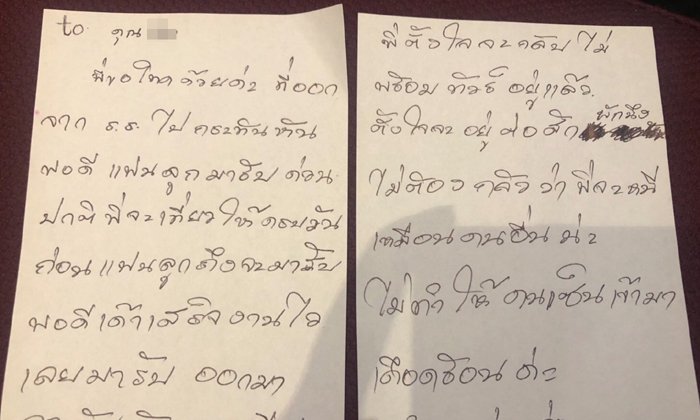 to. คุณ
พี่ขอโทษด้วยค่ะ ที่ออก
จาก ร.ร. ไป กระทันหัน
พอดี แฟนลูกมารับ ก่อน
ปกติ พี่จะเที่ยวให้ครบวัน
ก่อน แฟนลูกถึงจะมารับ
พอดีเค้าเสร็จงานไว
เลยมารับ ออกมา
พี่ตั้งใจจะกลับ ไม่
พร้อม ทัวร์ อยู่แล้ว.
ตั้งใจจะ อยู่ ต่อ สัก พักนึง
ไม่ต้อง กลัว ว่า พี่จะหนี
เหมือน คนอื่น น่ะ
ไม่ทำ ให้ คนเซ็น เข้ามา
เดือดร้อน ค่ะ